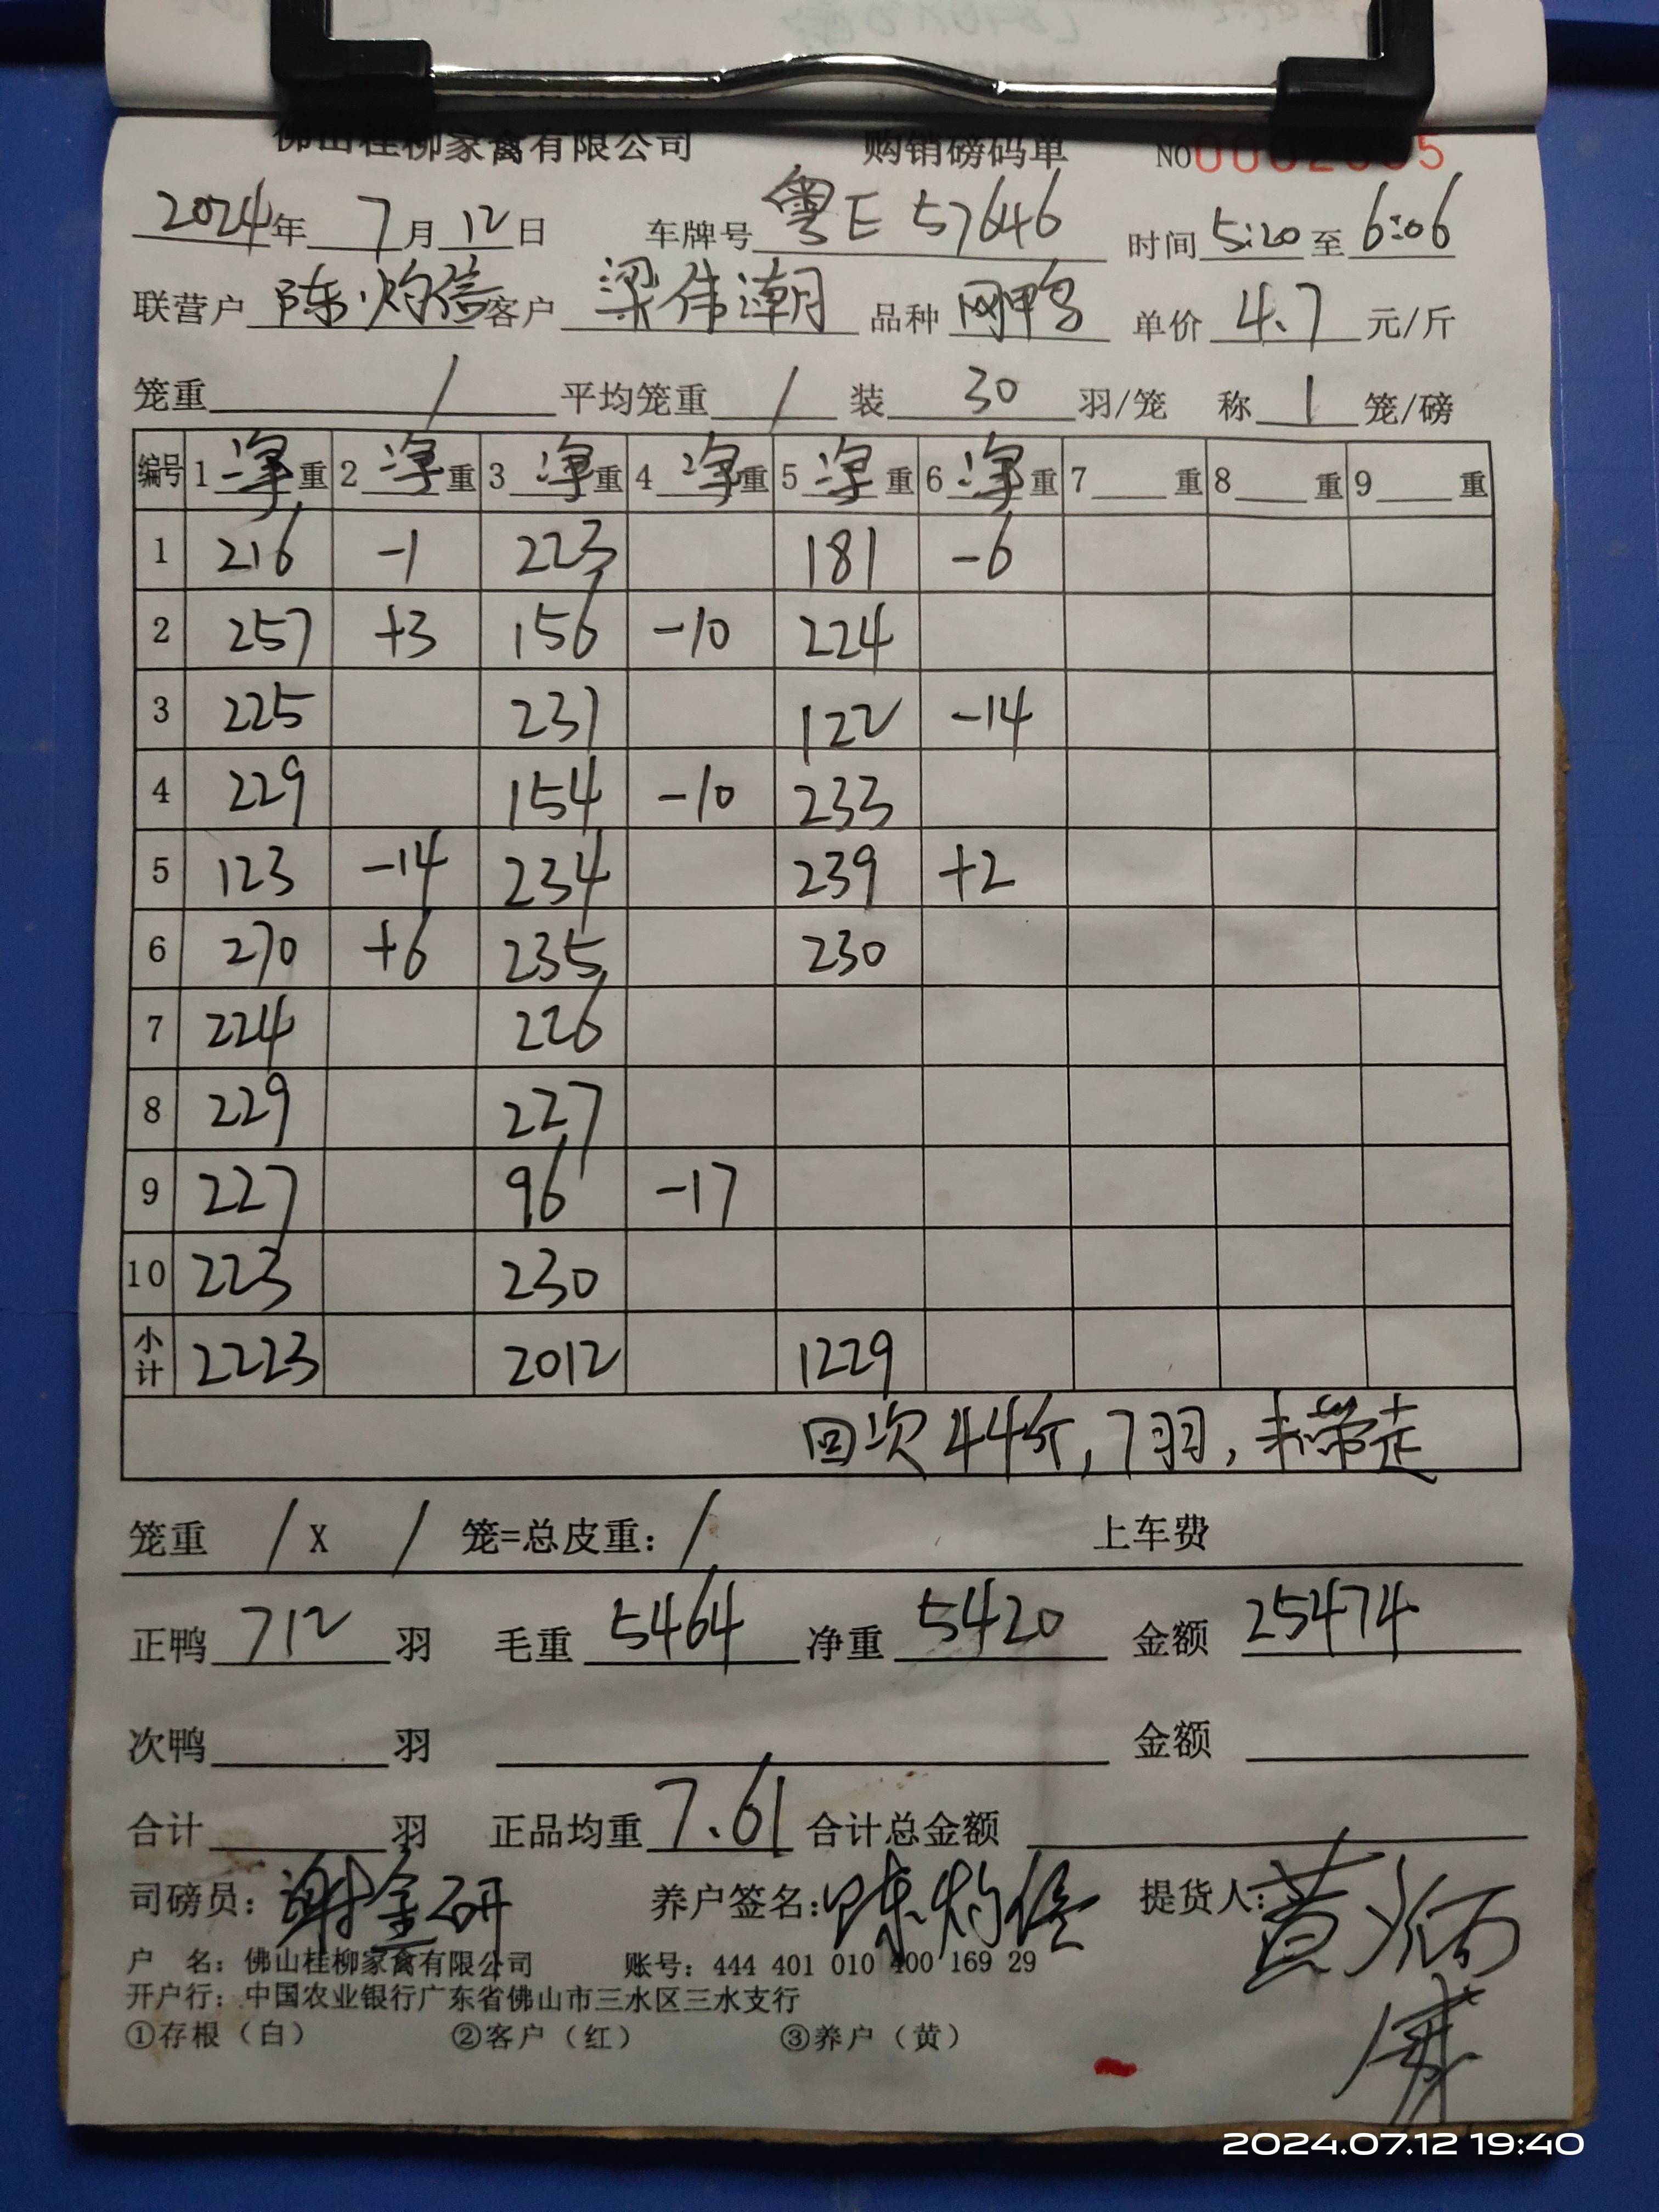 佛山桂柳家禽有限公司 购销磅码单 NO
2024年 7月 12日 车牌号 粤E 57646 时间 5:20 至 6:06
联营户 陈灼信 客户 梁伟潮 品种 网鸭 单价 4.7 元/斤
笼重 / 平均笼重 / 装 30 羽/笼 称 1 笼/磅
编号 1 净重 2 净重 3 净重 4 净重 5 净重 6 净重 7 重 8 重 9 重
1 216 -1 223 181 -6
2 257 +3 156 -10 224
3 225 231 122 -14
4 229 154 -10 233
5 123 -14 234 239 +2
6 270 +6 235 230
7 224 226
8 229 227
9 227 96 -17
10 223 230
小计 2223 2012 1229
回次44斤,7羽,未带走
笼重 / X / 笼=总皮重: / 上车费
正鸭 712 羽 毛重 5464 净重 5420 金额 25474
次鸭 羽 金额
合计 羽 正品均重 7.61 合计总金额
司磅员: 谢金研 养户签名: 陈灼信 提货人: 黄炳
户 名: 佛山桂柳家禽有限公司 账号: 444 401 010 400 169 29
开户行: 中国农业银行广东省佛山市三水区三水支行
①存根（白） ②客户（红） ③养户（黄）
2024.07.12 19:40